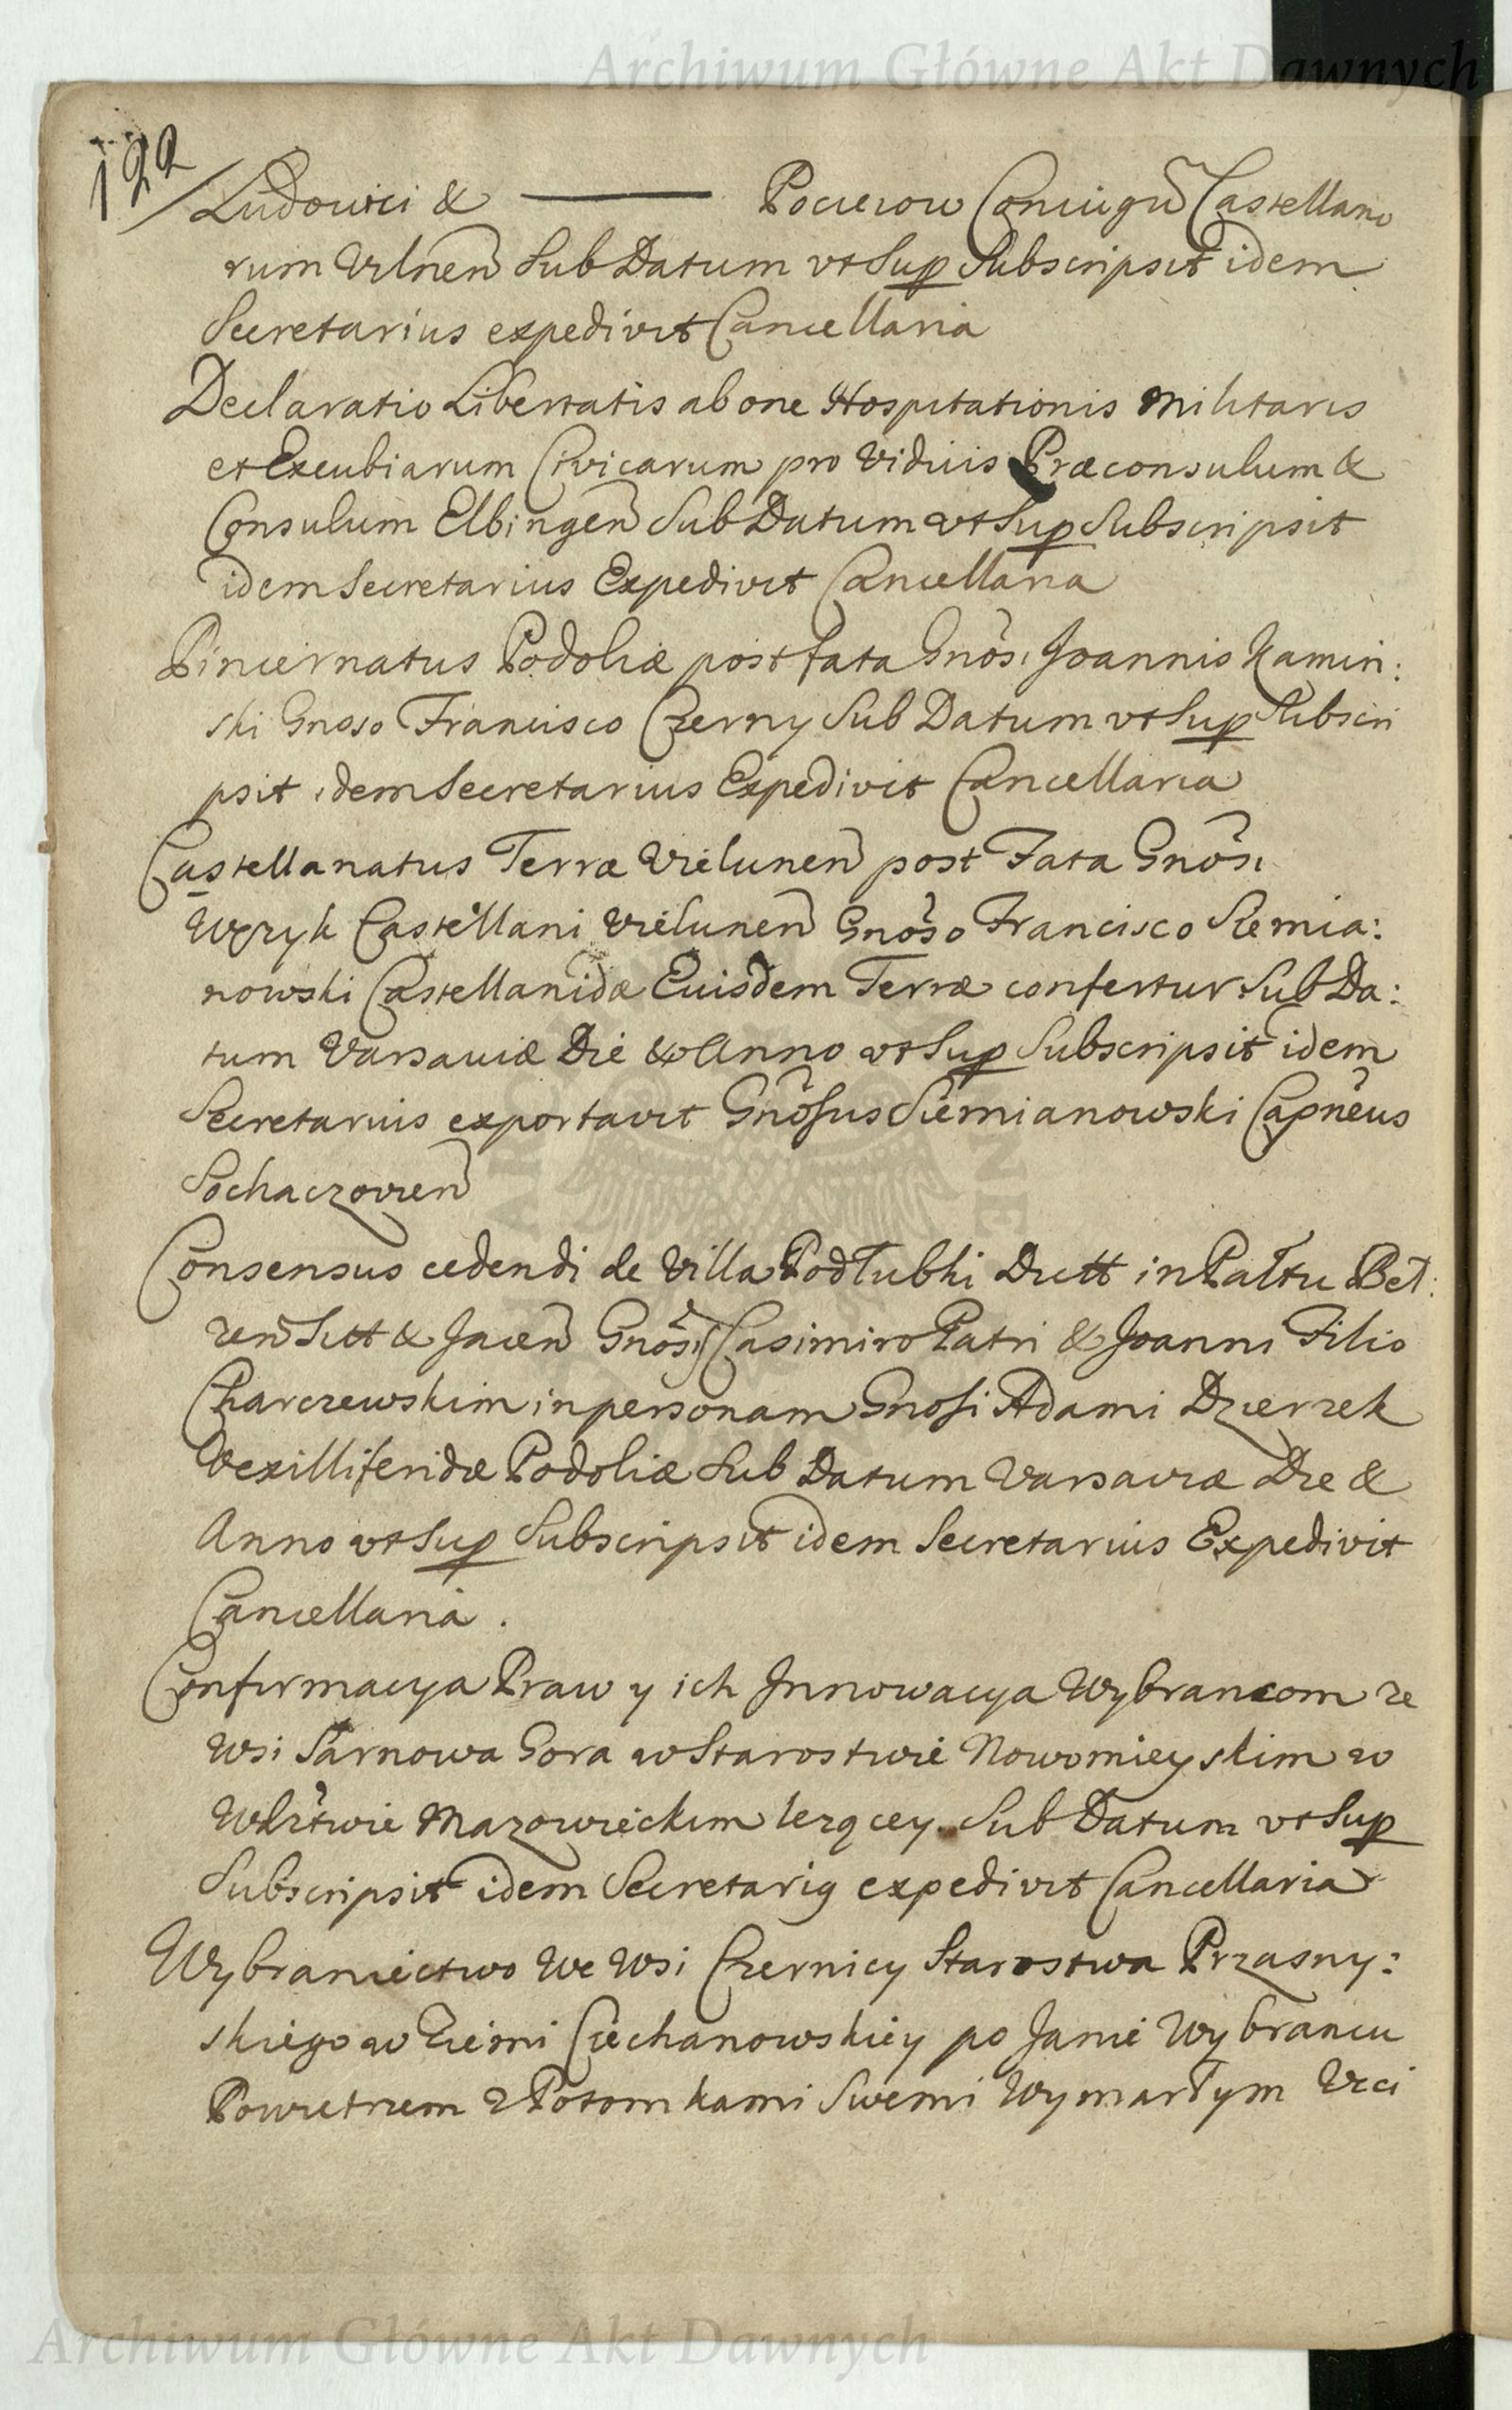 Archiwum Główne Akt Dawnych
122
Ludowici & ——— Pocieiow Coniugũ Castellano
rum Vilnen Sub Datum vt Sup Subscripsit idem
Secretarius expedivit Cancellaria
Declaratio Libertatis ab one Hospitationis Militaris
et Excubiarum Civicarum pro Viduis Præconsulum &
Consulum Elbingen Sub Datum vt Sup Subscripsit
idem Secretarius Expedivit Cancellaria
Pincernatus Podoliæ post fata Gnõsi Joannis Kamin:
ski Gnoso Francisco Czerny Sub Datum vt Sup Subscri
psit idem Secretarius Expedivit Cancellaria
Castellanatus Terræ Vielunen post Fata Gnõsi
Węzyk Castellani Vielunen Gnõso Francisco Siemia:
nowski Castellanidæ Eiusdem Terræ confertur Sub Da:
tum Varsaviæ Die & Anno vt Sup Subscripsit idem
Secretarius exportavit Gnõsus Siemianowski Capnẽus
Sochaczovien
Consensus cedendi de Villa Podłubki Dictt in Pałtu Beł:
zen Sitt & Jacen Gnõsi Casimiro Patri & Joanni Filio
Charczewskim in personam Gnosi Adami Dzierzek
Vexilliferidæ Podoliæ Sub Datum Varsaviæ Die &
Anno vt Sup Subscripsit idem Secretarius Expedivit
Cancellaria .
Confirmacya Praw y ich Innowacya Wybrancom ze
Wsi Sarnowa Gora w Starostwie Nowomieyskim w
Wdztwie Mazowieckim lezącey Sub Datum vt Sup
Subscripsit idem Secretarig expedivit Cancellaria
Wybraniectwo We Wsi Czernicy Starostwa Przasny:
skiego w Ziemi Ciechanowskiey po Janie Wybrancu
Powietrzem z Potomkami Swemi Wymarłym Vcci
Archiwum Główne Akt Dawnych